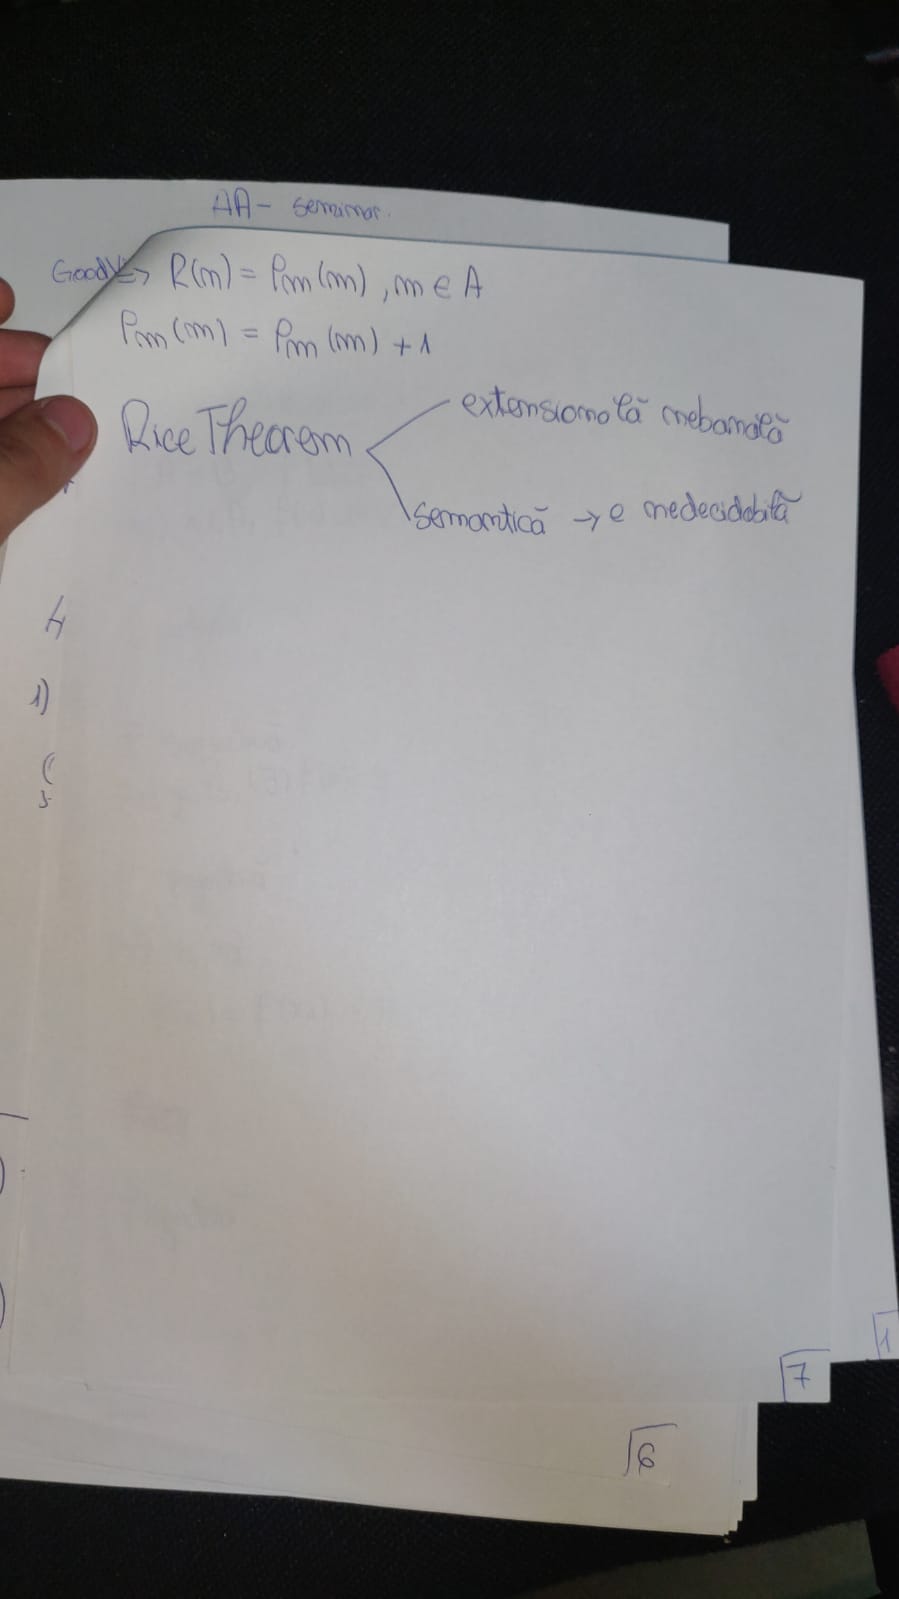 AA - seminar.
Goodⱱ=> R(n) = Pm(m), m ∈ A
Pm(m) = Pm(m) + 1
Rice Theorem
extensională nebanală
semantică → e nedecidabilă
1)
(
7
1
6